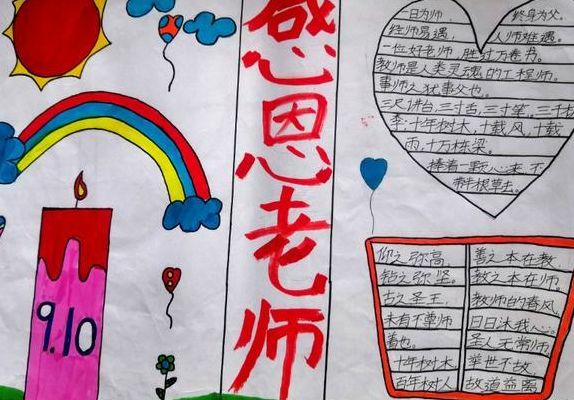 9.10
感恩老师
一日为师，终身为父。
经师易遇，人师难遇。
一位好老师，胜过万卷书。
教师是人类灵魂的工程师。
事师之犹事父也。
三尺讲台，三寸舌，三寸笔，三千
李，十年树木，十载风，十载
雨，十万栋梁。
捧着一颗心来，不
带半根草去。
仰之弥高，
钻之弥坚。
古之圣王，
未有不尊师
者也。
十年树木
百年树人
善之本在教
教之本在师
教师的春风，
日日沐我心。
圣人无常师
举世不故
故道益离